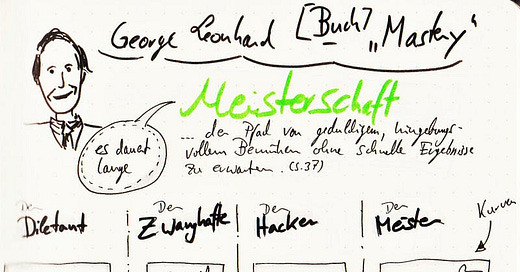 George Leonhard [Buch] „Mastery"
Meisterschaft
... der Pfad von geduldigem, hingebungs-
vollem Bemühen ohne schnelle Ergebnisse
zu erwarten. (S.37)
es dauert
lange
Der Der Der
Diletant Zwanghafte Hacker Meister
Kurven